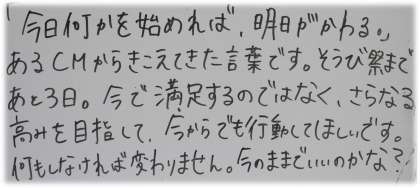 「今日何かを始めれば、明日がかわる。」
あるCMからきこえてきた言葉です。そうび祭まで
あと3日。今で満足するのではなく、さらなる
高みを目指して、今からでも行動してほしいです。
何もしなければ変わりません。今のままでいいのかな?